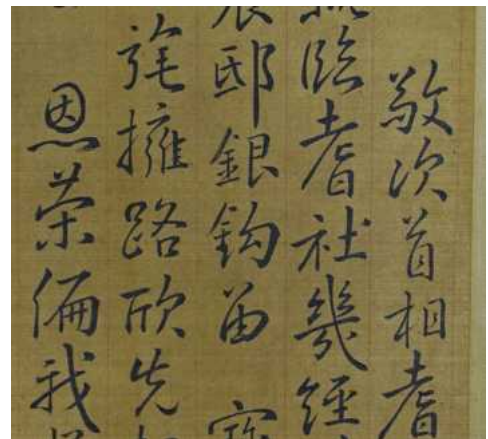 敬次首相耆
臨耆社幾經
邸銀鉤留
旄擁路欣先
恩榮偏我